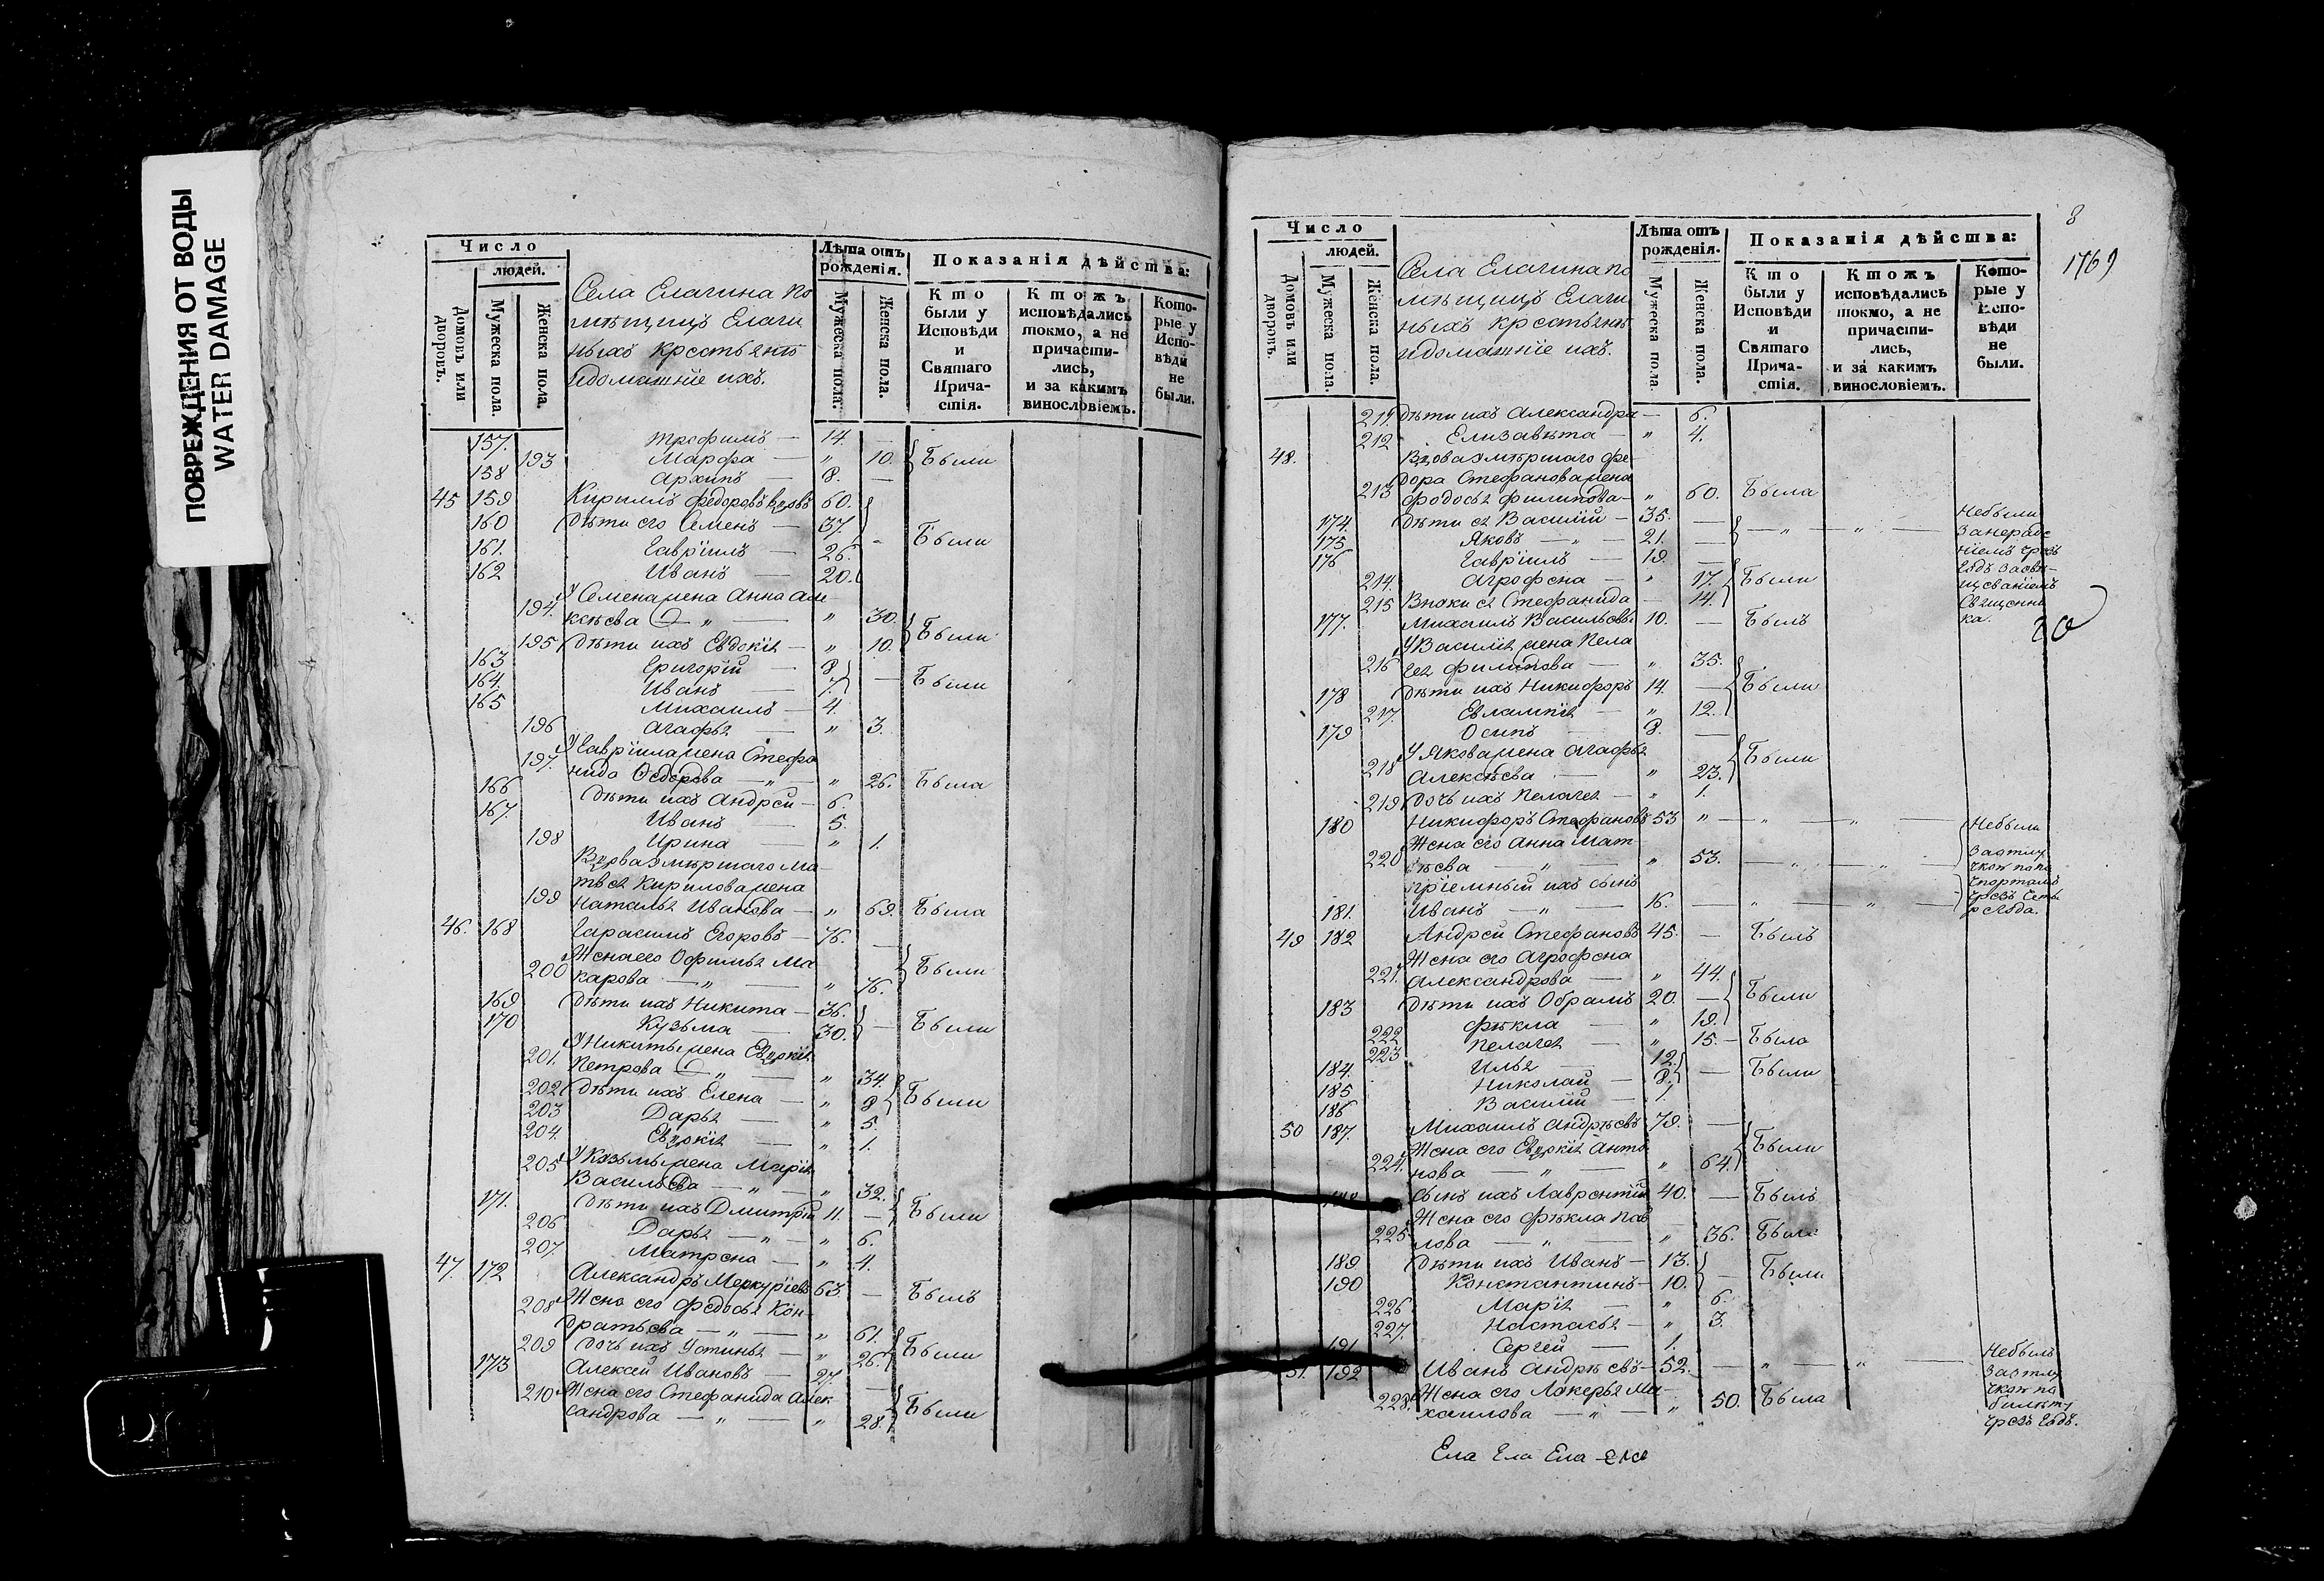 ПОВРЕЖДЕНИЯ ОТ ВОДЫ
WATER DAMAGE
Число
людей.
Домовъ или дворовъ.
Мужеска пола.
Женска пола.
Села Елагина по
мѣщицъ Елаги
ныхъ крестьянъ
идомашніе ихъ.
Лѣта отъ рожденія.
Мужеска пола.
Женска пола.
Показанія дѣйства:
Кто были у Исповѣди и Святаго Прича-стія.
Ктожъ исповѣдались токмо, а не причасти-лись, и за какимъ винословіемъ.
Кото-рые у Испо-вѣди не были.
157. Трофимъ — 14. —
193 Марфа — " 10. Были
158 Архипъ — 8. —
45 159 Кирилъ Федоровъ вдовъ 60.
160 Дѣти его Семенъ — 37.
161. Гавріилъ — 26. Были
162 Иванъ — 20.
У Семена жена Анна Але
194. ксѣева — " — " 30.
195 Дѣти ихъ Евдокія — " 10. Были
163 Григорій — 8
164. Иванъ — 7. — Были
165 Михаилъ — 4.
196 Агафья — " 3.
У Гавріила жена Стефа
197. нида Ѳедорова — " — " 26. Была
166 Дѣти ихъ Андрей — 6.
167. Иванъ — 5.
198 Ирина — " 1.
Вдова умѣршаго Ма
твея Кирилова жена
199 Наталья Иванова — " 69. Была
46. 168 Гарасимъ Егоровъ — 76. —
Жена его Офимья Ма
200 карова — " — " 76. Были
169 Дѣти ихъ Никита — 36.
170 Кузьма — 30. — Были
У Никиты жена Евдокія
201. Петрова — " — " 34.
202 Дѣти ихъ Елена — " 8 Были
203 Дарья — " 5.
204. Евдокія — " 1.
205 У Козьмы жена Марія
Васильева — " — " 32.
171. Дѣти ихъ Дмитрій 11. — Были
206 Дарья — " — " 6.
207. Матрена — " 4.
47. 172 Александръ Меркуріевъ 63. — Былъ
208 Жена его Федосья Кон-
дратьева — " — " 61.
209 Дочь ихъ Устинья — " 26. Были
173 Алексей Ивановъ — 27 —
210 Жена его Стефанида Алек
сандрова — " — " 28. Были
8
1769
Число
людей.
Домовъ или дворовъ.
Мужеска пола.
Женска пола.
Села Елагина по
мѣщицъ Елаги
ныхъ крестьянъ
идомашніе ихъ.
Лѣта отъ рожденія.
Мужеска пола.
Женска пола.
Показанія дѣйства:
Кто были у Исповѣди и Святаго Прича-стія.
Ктожъ исповѣдались токмо, а не причасти-лись, и за какимъ винословіемъ.
Кото-рые у Испо-вѣди не были.
211. Дѣти ихъ Александра — 6.
212 Елизавѣта — " 4.
48. Вдова умѣршаго Фе-
дора Стефанова жена
213 Фодосья Филипова — " 60. Была
174. Дѣти ея Василій — 35. — Небыли
175 Яковъ — " — 21. — " — " — Занераде
176 Гавріилъ — 19. — ніемъ чрезъ
214. Агрофена — " 17. Были
215 Внуки ея Стефанида — 14.
177. Михаилъ Васильевъ. 10. — Былъ
У Василія жена Пела
216 гея Филипова — " 35.
178 Дѣти ихъ Никифоръ 14. — Были
217. Евлампія — " 12.
179 Осипъ — 8. —
У Якова жена Агафья
218 Алексѣева — " 23. Были
219 Дочь ихъ Пелагея — " 1.
180 Никифоръ Стефановъ 53 " — " — " — Небыли
Жена его Анна Мат
220 вѣева " — " 53. — " — "
пріемный ихъ сынъ
181. Иванъ — " — 16. — " — "
49 182 Андрей Стефановъ 45. — Былъ
Жена его Агрофена
221. Александрова — " 44.
183 Дѣти ихъ Обрамъ 20. — Были
222 Фѣкла — " 19.
223 Пелагея — " 15. — Была
184. Илья — 12.
185 Николай — 8. — Были
186 Василій — 1.
50 187. Михаилъ Андрѣевъ 79. —
Жена его Евдокія Анто
224. нова — " — " 64. Были
188 Сынъ ихъ Лаврентій 40. — Былъ
Жена его Фѣкла Пав
225 лова — " — " 36. Была
189 Дѣти ихъ Иванъ — 13.
190 Константинъ — 10. — Были
226 Марія — " 6.
227. Настасья — " 3.
191 Сергей — 1.
51. 192 Иванъ Андрѣевъ — 52. — " — " — Небылъ
228. Жена его Лукерья Ми
хаилова — " — " 50. Была
чрезъ годъ.
Ела Ела Ела